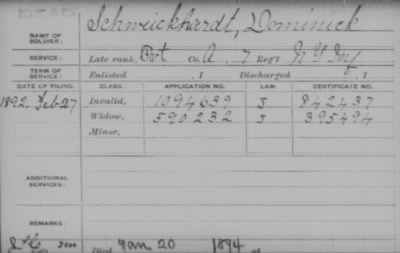 DEAD
NAME OF SOLDIER: Schweickhardt, Dominick
SERVICE: Late rank, Pvt Co. A, 7 Reg't N Y Inf
TERM OF SERVICE: Enlisted , 1 Discharged , 1
DATE OF FILING. CLASS. APPLICATION NO. LAW. CERTIFICATE NO.
1892. Feb 27 Invalid, 1094639 J 842437
Widow, 590232 J 395494
Minor,
ADDITIONAL SERVICES:
REMARKS:
Died Jan 20 1894 at